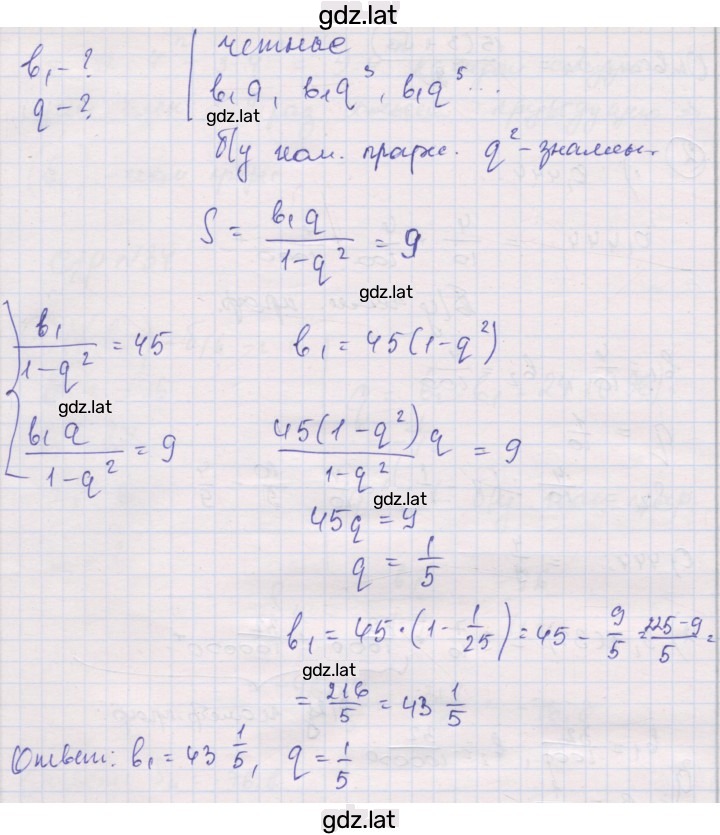 gdz.lat
b₁ - ?
q - ?
четные
b₁q, b₁q³, b₁q⁵...
gdz.lat
q² - знамен.
S = b₁q / (1-q²) = 9
gdz.lat
b₁ / (1-q²) = 45
b₁ = 45(1-q²)
gdz.lat
b₁q / (1-q²) = 9
45(1-q²)q / (1-q²) = 9
gdz.lat
45q = 9
q = 1/5
b₁ = 45·(1 - 1/25) = 45 - 9/5 = (225-9)/5 =
gdz.lat
= 216/5 = 43 1/5
Ответ: b₁ = 43 1/5, q = 1/5
gdz.lat